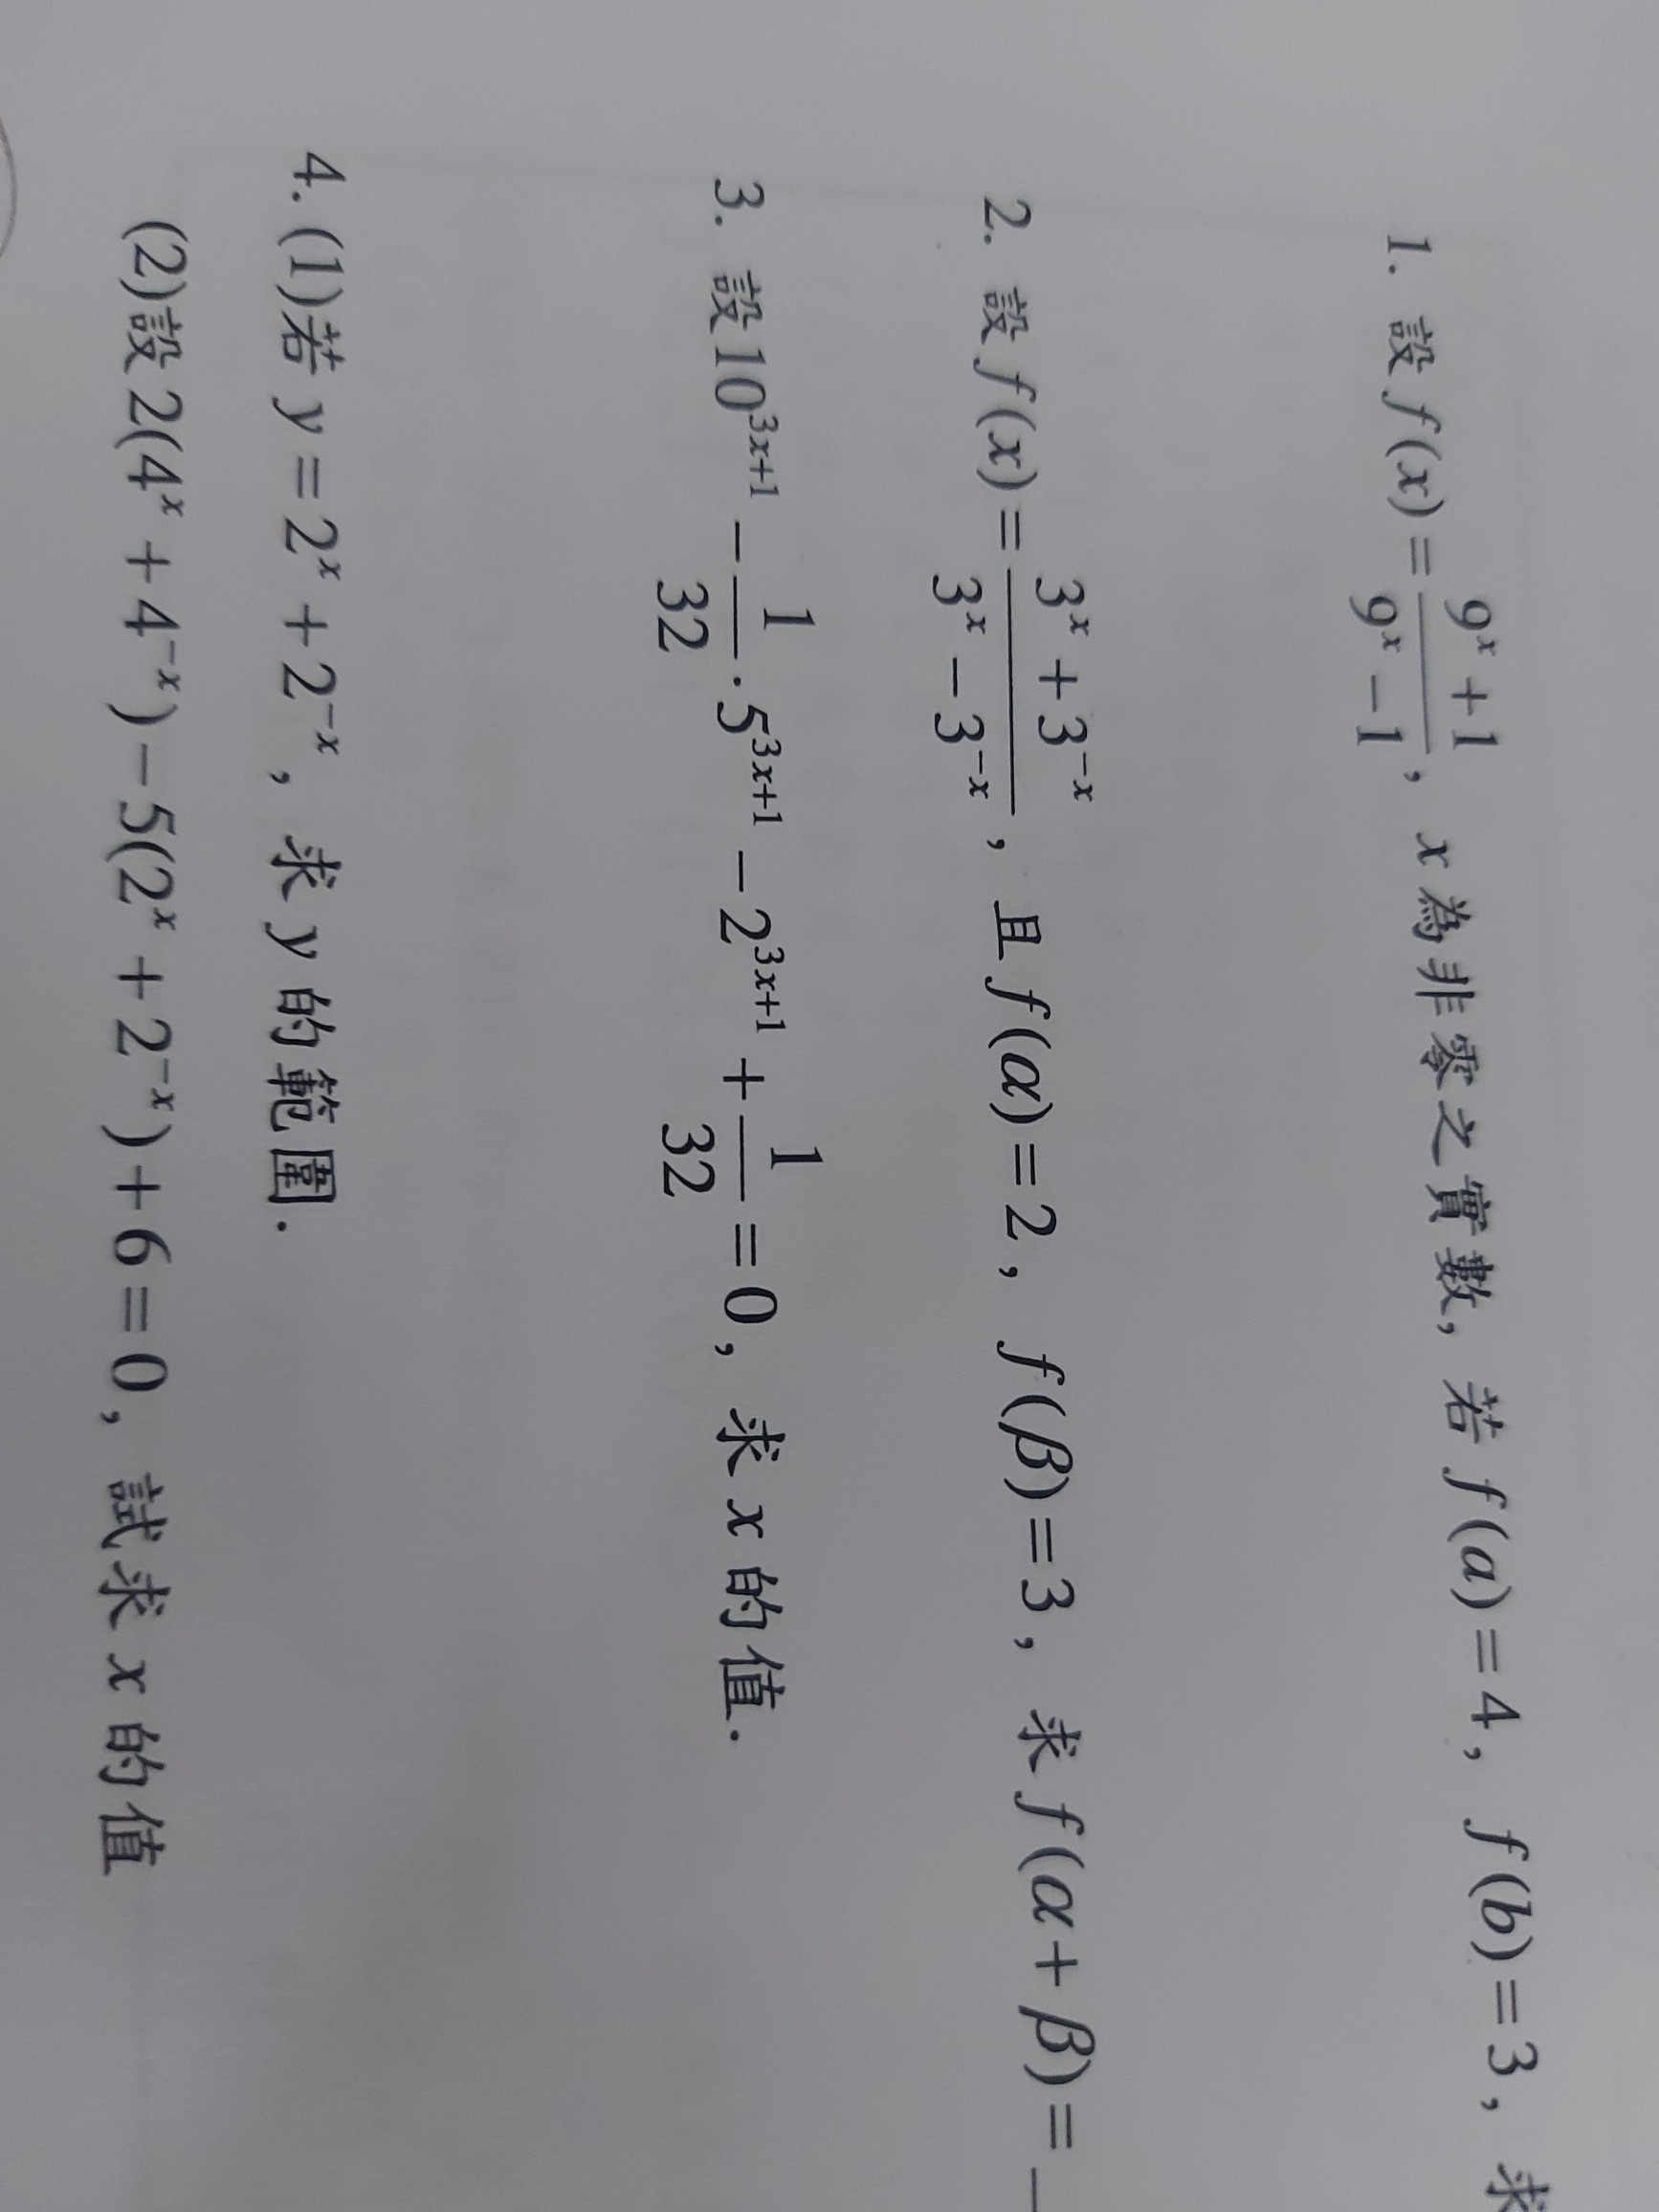 1. 設 f(x) = \frac{9^x + 1}{9^x - 1}, x 為非零之實數, 若 f(a) = 4, f(b) = 3, 求
2. 設 f(x) = \frac{3^x + 3^{-x}}{3^x - 3^{-x}}, 且 f(α) = 2, f(β) = 3, 求 f(α + β) =
3. 設 10^{3x+1} - \frac{1}{32} · 5^{3x+1} - 2^{3x+1} + \frac{1}{32} = 0, 求 x 的值.
4. (1)若 y = 2^x + 2^{-x}, 求 y 的範圍.
(2)設 2(4^x + 4^{-x}) - 5(2^x + 2^{-x}) + 6 = 0, 試求 x 的值